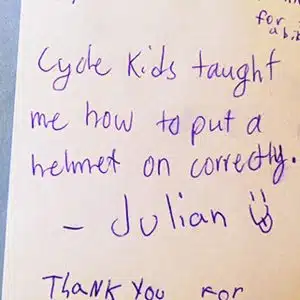 for
a bit
Cycle Kids taught
me how to put a
helmet on correctly.
- Julian
THANK YOU FOR